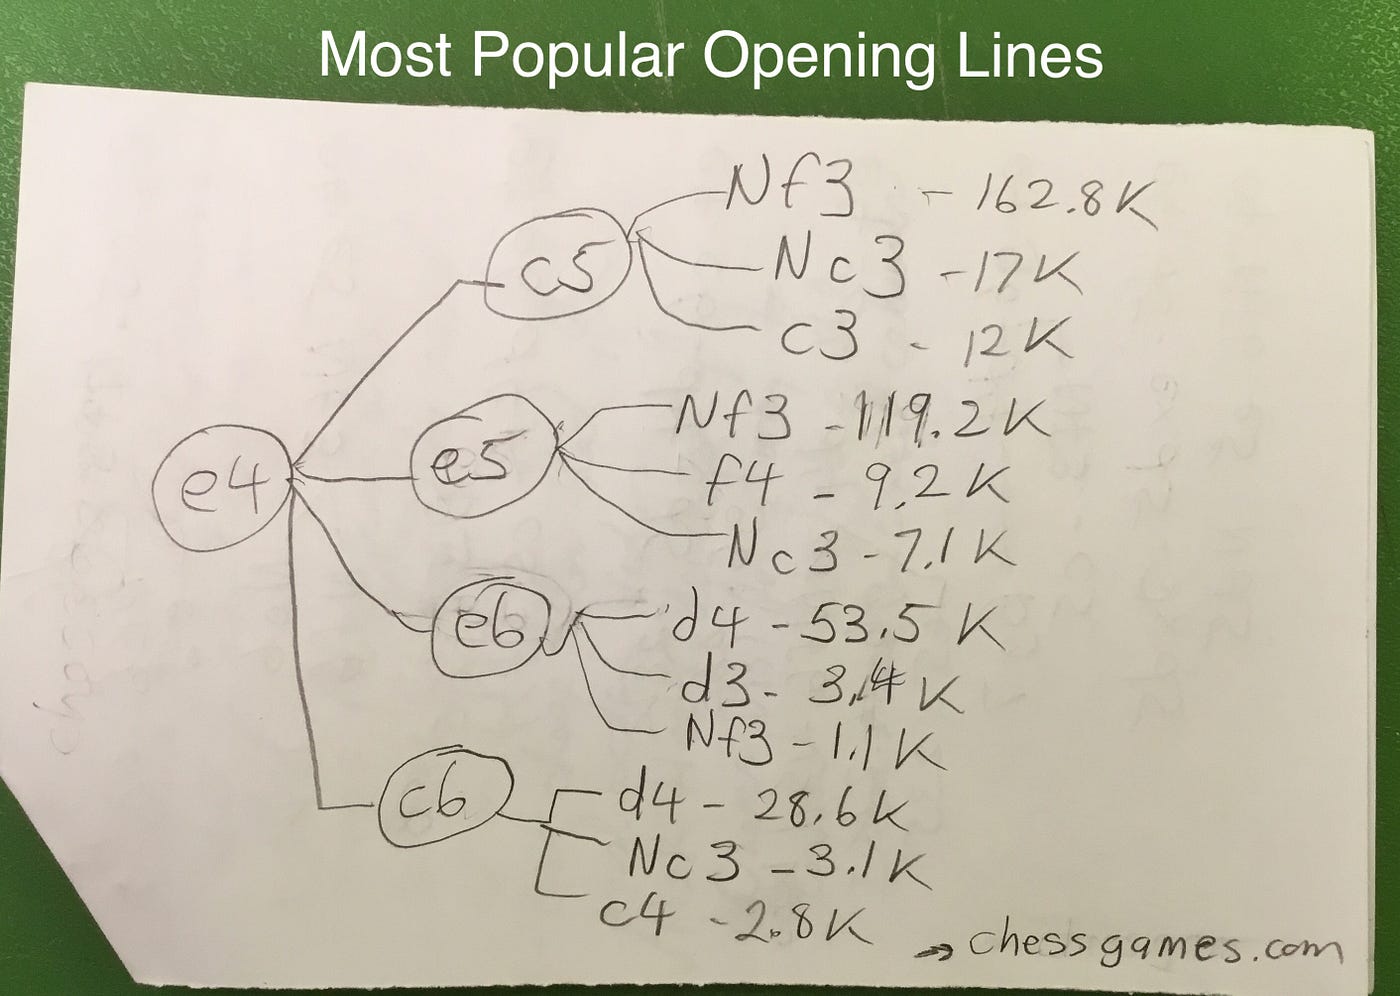 Most Popular Opening Lines
Nf3 - 162.8K
c5
Nc3 - 17K
c3 - 12K
Nf3 - 119.2K
e4
e5
f4 - 9.2K
Nc3 - 7.1K
d4 - 53.5K
e6
d3 - 3.4K
Nf3 - 1.1K
d4 - 28.6K
c6
Nc3 - 3.1K
c4 - 2.8K
→ chessgames.com